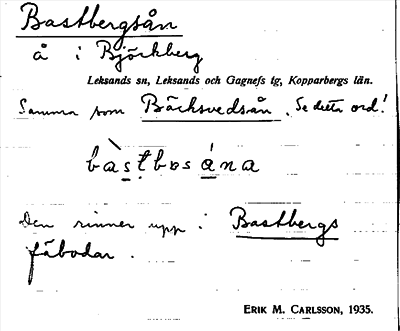 Bastbergsån
å i Björkberg
Leksands sn, Leksands och Gagnefs tg, Kopparbergs län.
Samma som Bäcksvedsån. Se detta ord!
bàstbəsána
Den rinner upp i Bastbergs
fäbodar.
ERIK M. CARLSSON, 1935.